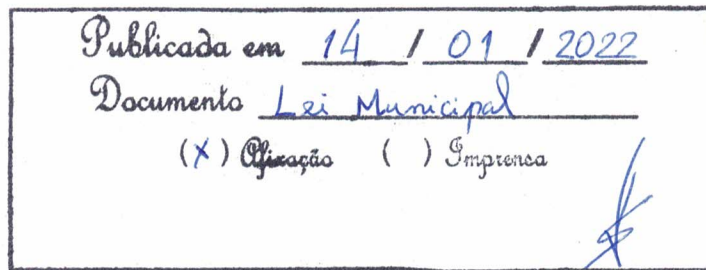 Publicada em 14 / 01 / 2022
Documento Lei Municipal
(X) Afixação ( ) Imprensa